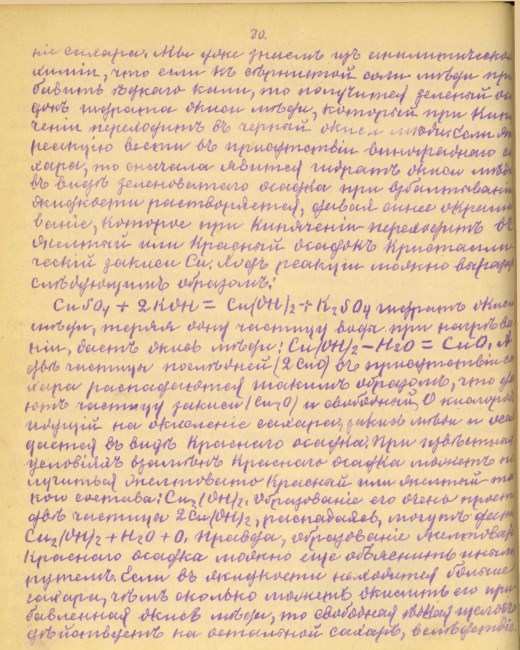 30.
ніе сахара. Мы уже знаемъ изъ аналитической
химіи, что если къ сѣрнистой соли мѣди при
бавить ѣдкаго кали, то получится зеленый оса
докъ гидрата окиси мѣди, который при кипя
ченіи переходитъ въ черный окисел мѣди. Если эту
реакцію вести въ присутствіи винограднаго са
хара, то сначала явится гидратъ окиси мѣди
въ видѣ зеленоватаго осадка при взбалтываніи
жидкости растворяется, давая синее окраши
ваніе, которое при кипяченіи переходитъ въ
желтый или красный осадокъ кристалли
ческій закиси Cu. Ходъ реакціи можно выразить
слѣдующимъ образомъ:
CuSO4 + 2KOH = Cu(OH)2 + K2SO4 гидратъ окиси
мѣди, теряя одну частицу воды при нагрѣва
ніи, дастъ окись мѣди: Cu(OH)2 – H2O = CuO. А
двѣ частицы послѣдней (2CuO) въ присутствіи са
хара распадаются такимъ образомъ, что да
ютъ частицу закиси (Cu2O) и свободный O кислородъ
идущій на окисленіе сахара; закись мѣди и оса
дается въ видѣ краснаго осадка. При извѣстныхъ
условіяхъ взамѣнъ краснаго осадка можетъ по
лучиться желтовато красный или желтый та
кого состава: Cu2(OH)2. Образованіе его очень просто
двѣ частицы 2Cu(OH)2, распадаясь, могутъ дать
Cu2(OH)2 + H2O + O. Правда, образованіе желтовато
краснаго осадка можно еще объяснить инымъ
путемъ. Если въ жидкости находится больше
сахара, чѣмъ сколько можетъ окислить его при
бавленная окись мѣди, то свободная щелочь
дѣйствуетъ на остальной сахаръ, вслѣдствіе